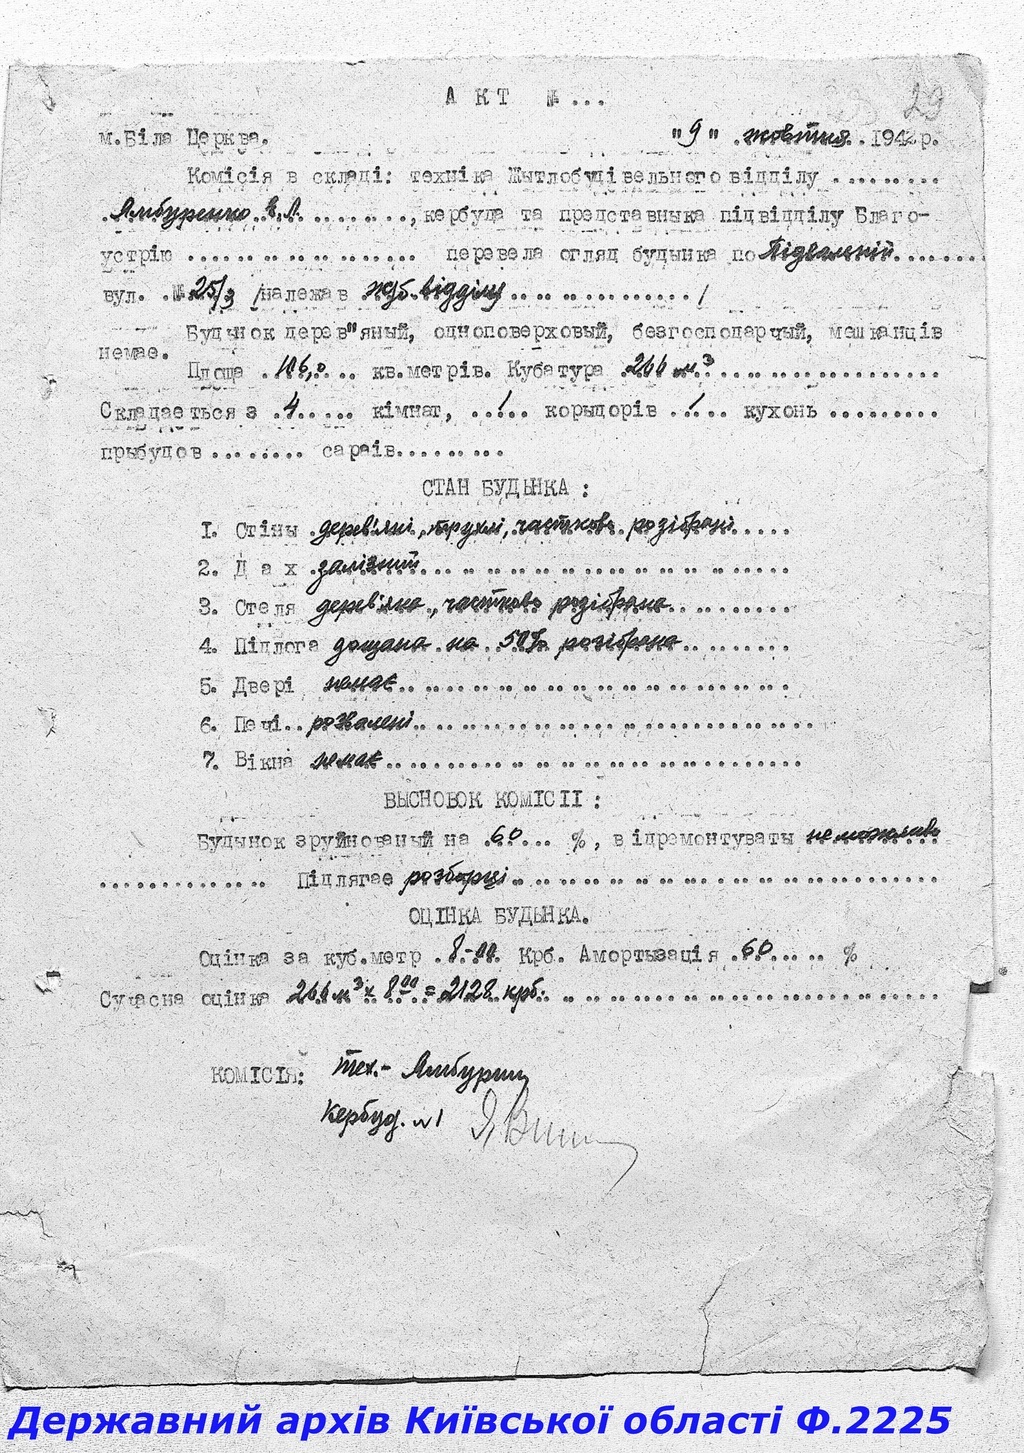 29
АКТ № ...
м.Біла Церква. "9" жовтня 1942р.
Комісія в складі: техніка Жытлобудівельного відділу .........
Амбуренко В.Л. ........, кербуда та представныка підвідділу Благо-
устрію .................. перевела огляд будынка по Підвальній ........
вул. № 25/3 /належав жуб. відділу ................ /
Будынок дерев"яный, одноповерховый, безгосподарчый, мешканців
немае.
Площа 106,0 .. кв.метрів. Кубатура 266 м³ ..................
Складаеться з 4 ..... кімнат, ..1.. корыдорів ..1.. кухонь .........
прыбудов ........ сараів.........
СТАН БУДЫНКА :
1. Стіны дерев'яні, трухлі, частково розібрані .....
2. Дах залізний ..........................
3. Стеля дерев'яна, частково розібрана ..........
4. Підлога дощана на 50% розібрана ........
5. Двері немає ..........................
6. Печі.. розвалені ..........................
7. Вікна немає ..........................
ВЫСНОВОК КОМІСІІ :
Будынок зруйнованый на 60 ... %, відремонтуваты неможливо
............. Підлягае розборці ............................
ОЦІНКА БУДЫНКА.
Оцінка за куб.метр 8-00 Крб. Амортызація 60 ..... %
Сучасна оцінка 266 м³ х 8 00 = 2128 крб. ......................
КОМІСІЯ: Тех.-
Кербуд. №1
Державний архів Київської області Ф.2225